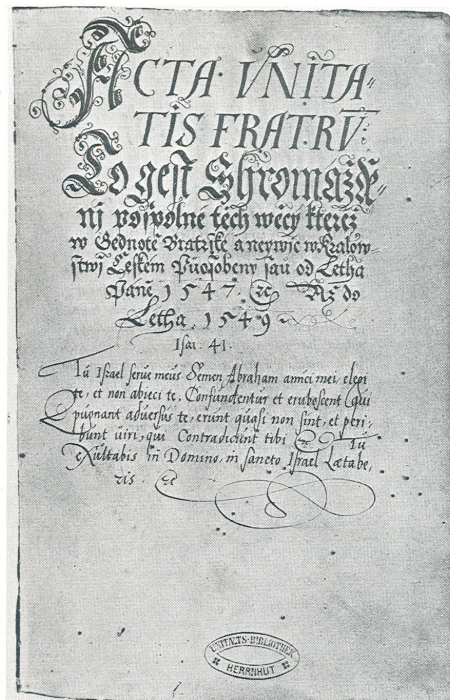 ACTA VNITA=
TIS FRATRV̄:
To gest Shromážde=
nj pospolne těch wěcy kterež
w Gednotě Bratrské a neywíc w Králow=
stwj Českém Puosobeny sau od Letha
Paně 1547. etc Až do
Letha. 1549
Isai. 41.
Tu Israel serue meus Semen Abraham amici mei, elegi
te, et non abieci te. Confundentur et erubescent qui
pugnant aduersus te, erunt quasi non sint, et peri=
bunt uiri, qui Contradicunt tibi etc Tu
exultabis in Domino, in sancto Israel Lætabe
ris. etc
UNITÆTS-BIBLIOTHEK
HERRNHUT